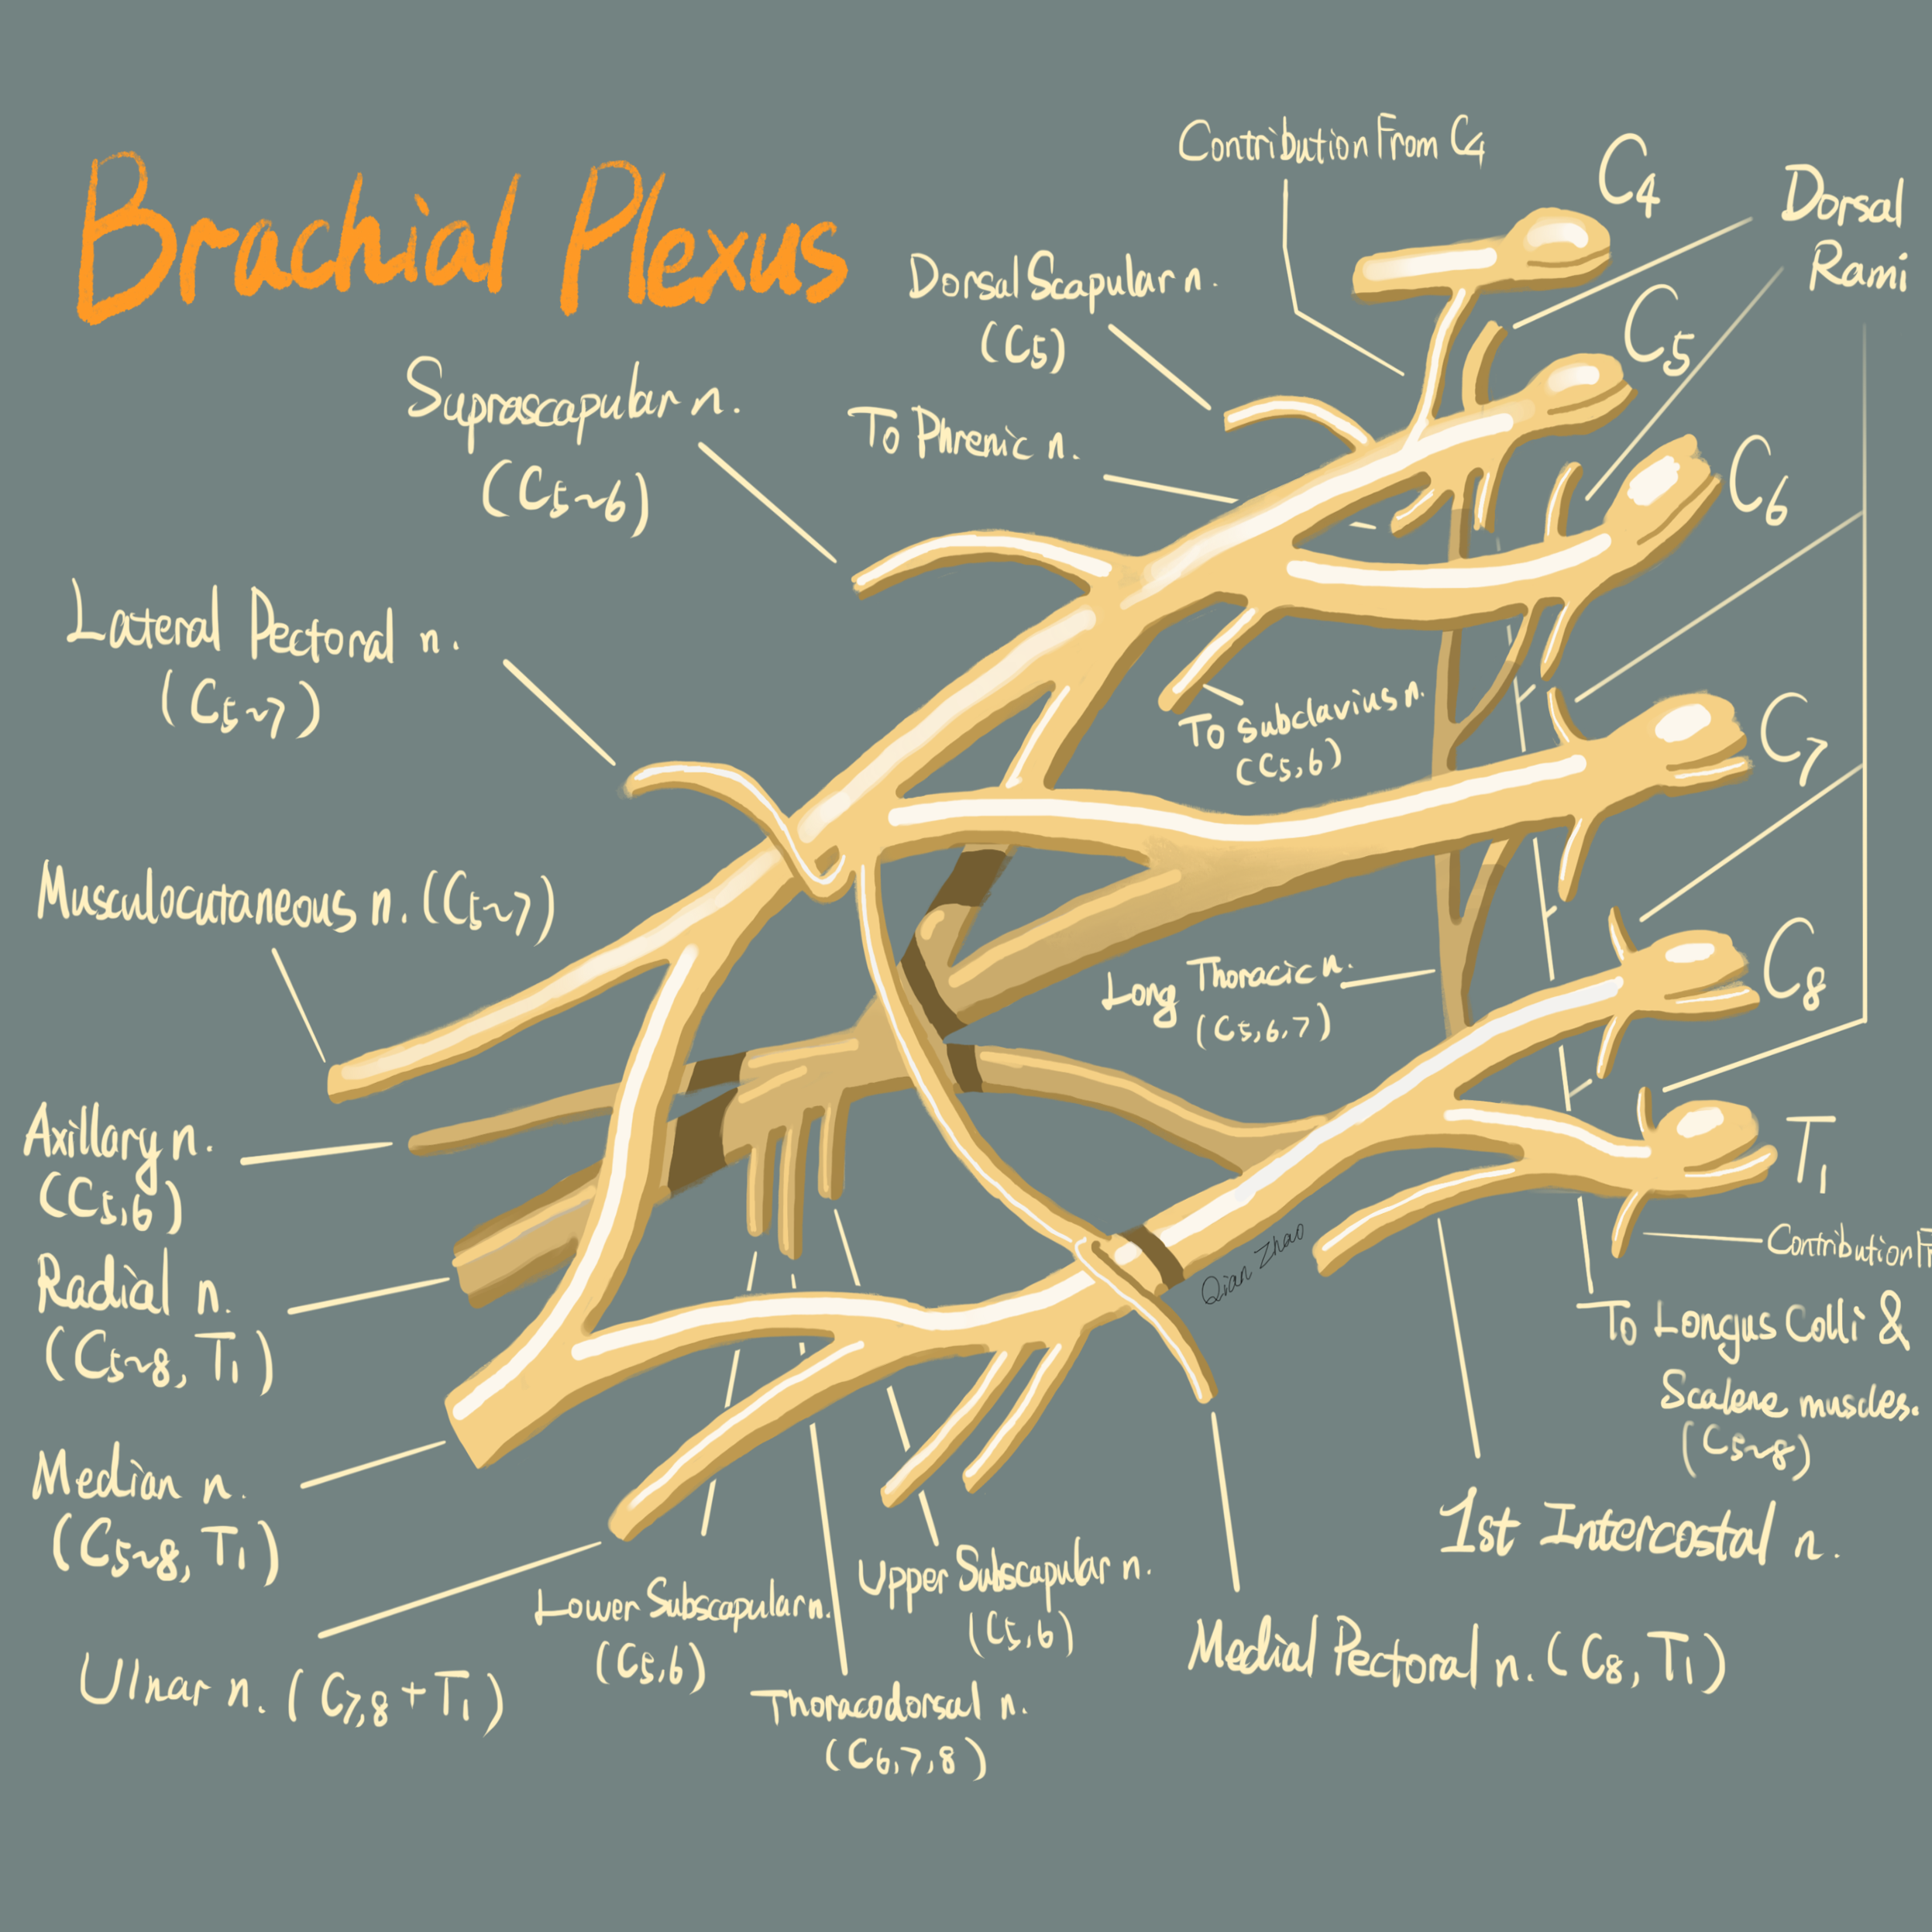 Brachial Plexus
Contribution From C4
C4
Dorsal
Rami
Dorsal Scapular n.
(C5)
C5
Suprascapular n.
(C5~6)
To Phrenic n.
C6
Lateral Pectoral n.
(C5~7)
To Subclavius n.
(C5,6)
C7
Musculocutaneous n. (C5~7)
Long Thoracic n.
(C5,6,7)
C8
Axillary n.
(C5,6)
T1
Radial n.
(C5~8, T1)
Qian Zhao
Contribution F
To Longus Colli &
Scalene muscles.
(C5~8)
Median n.
(C5~8, T1)
1st Intercostal n.
Lower Subscapular n.
(C5,6)
Upper Subscapular n.
(C5,6)
Medial Pectoral n. (C8, T1)
Ulnar n. (C7,8+T1)
Thoracodorsal n.
(C6,7,8)